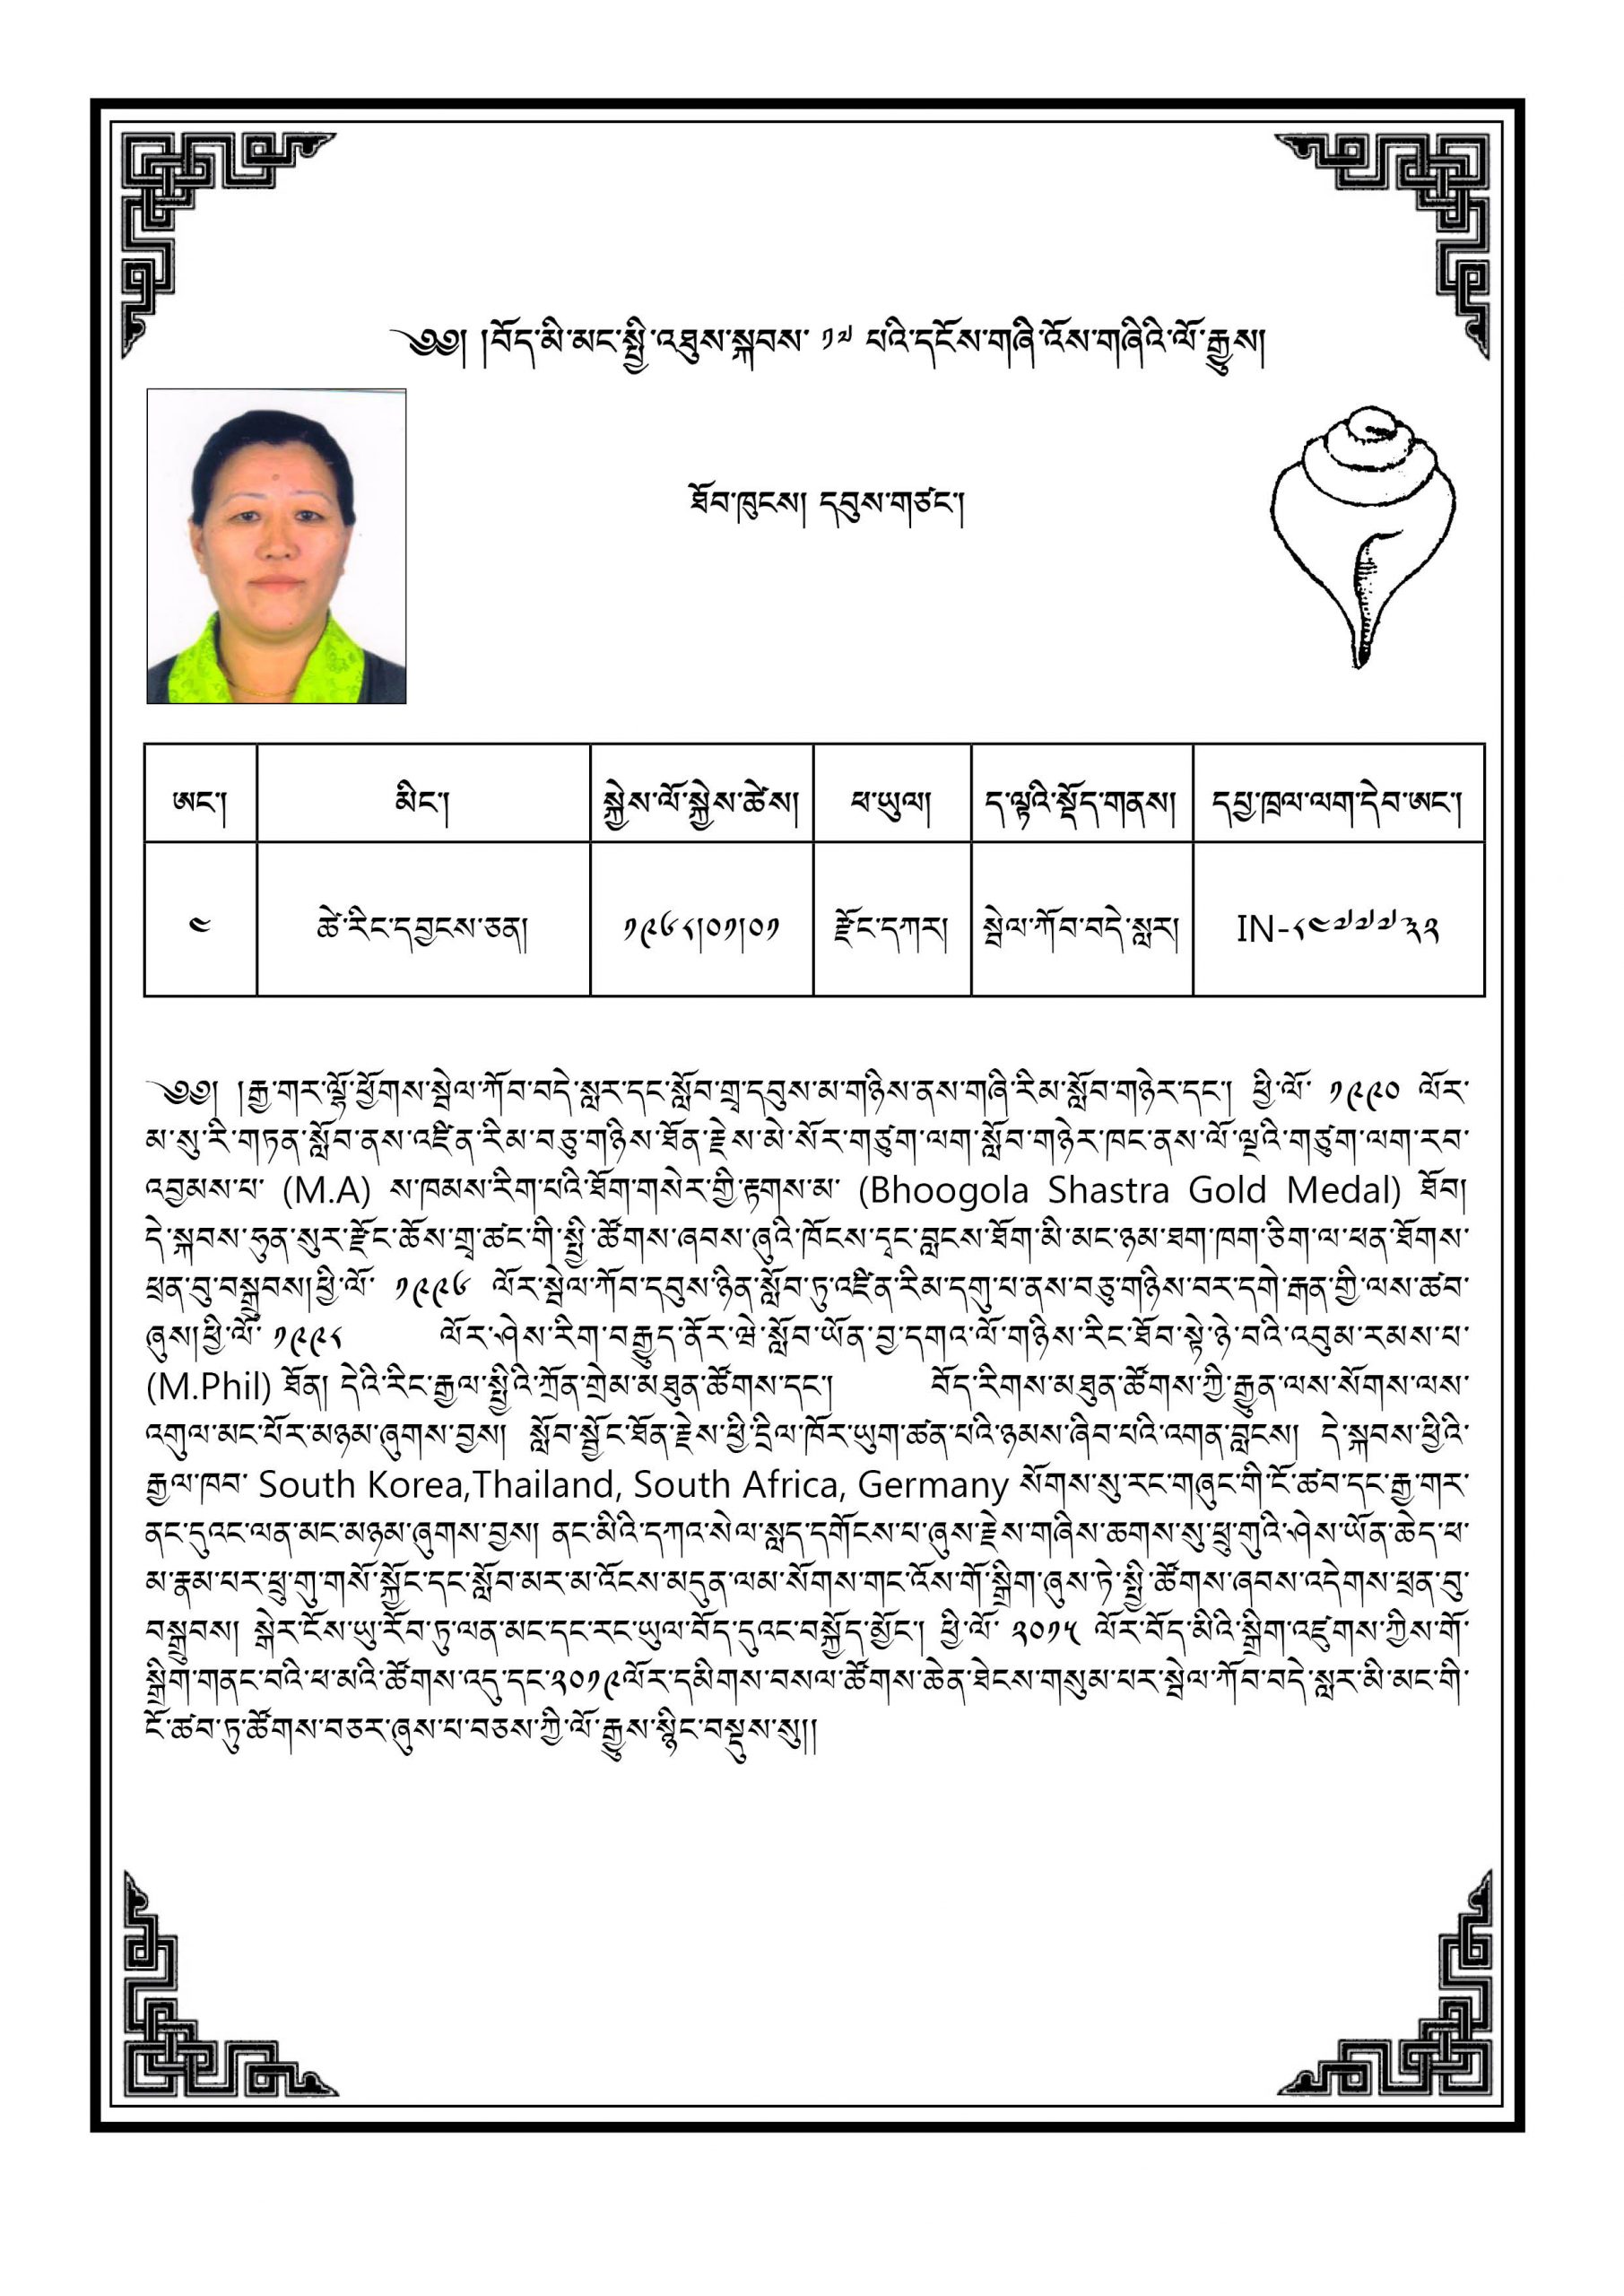 ༄༅། །བོད་མི་མང་སྤྱི་འཐུས་སྐབས་ ༡༧ པའི་དངོས་གཞི་འོས་གཞིའི་ལོ་རྒྱུས།
ཐོབ་ཁུངས། དབུས་གཙང་།
ཨང་། མིང་། སྐྱེས་ལོ་སྐྱེས་ཚེས། ཕ་ཡུལ། ད་ལྟའི་སྡོད་གནས། དཔྱ་ཁྲལ་ལག་དེབ་ཨང་།
༤ ཚེ་རིང་དབྱངས་ཅན། ༡༩༦༨།༠༡།༠༡ རྫོང་དཀར། སྦེལ་ཀོབ་བདེ་སླར། IN-༨༤༧༧༧༣༢
༄༅། །རྒྱ་གར་ལྷོ་ཕྱོགས་སྦེལ་ཀོབ་བདེ་སླར་དང་སློབ་གྲྭ་དབུས་མ་གཉིས་ནས་གཞི་རིམ་སློབ་གཉེར་དང་། ཕྱི་ལོ་ ༡༩༩༠ ལོར་
མ་སུ་རི་གཏན་སློབ་ནས་འཛིན་རིམ་བཅུ་གཉིས་ཐོན་རྗེས་མེ་སོར་གཙུག་ལག་སློབ་གཉེར་ཁང་ནས་ལོ་ལྔའི་གཙུག་ལག་རབ་
འབྱམས་པ་ (M.A) ས་ཁམས་རིག་པའི་ཐོག་གསེར་གྱི་རྟགས་མ་ (Bhoogola Shastra Gold Medal) ཐོབ།
དེ་སྐབས་ཧུན་སུར་རྫོང་ཆོས་གྲྭ་ཚང་གི་སྤྱི་ཚོགས་ཞབས་ཞུའི་ཁོངས་དྭང་བླངས་ཐོག་མི་མང་ཉམ་ཐག་ཁག་ཅིག་ལ་ཕན་ཐོགས་
ཕྲན་བུ་བསྒྲུབས།ཕྱི་ལོ་ ༡༩༩༦ ལོར་སྦེལ་ཀོབ་དབུས་ཉིན་སློབ་ཏུ་འཛིན་རིམ་དགུ་པ་ནས་བཅུ་གཉིས་བར་དགེ་རྒན་གྱི་ལས་ཚབ་
ཞུས།ཕྱི་ལོ་ ༡༩༩༨ ལོར་ཤེས་རིག་བརྒྱུད་ནོར་ཝེ་སློབ་ཡོན་བྱ་དགའ་ལོ་གཉིས་རིང་ཐོབ་སྟེ་ཉེ་བའི་འབུམ་རམས་པ་
(M.Phil) ཐོན། དེའི་རིང་རྒྱལ་སྤྱིའི་ཀྲོན་གྲེམ་མཐུན་ཚོགས་དང་། བོད་རིགས་མཐུན་ཚོགས་ཀྱི་རྒྱུན་ལས་སོགས་ལས་
འགུལ་མང་པོར་མཉམ་ཞུགས་བྱས། སློབ་སྦྱོང་ཐོན་རྗེས་ཕྱི་དྲིལ་ཁོར་ཡུག་ཚན་པའི་ཉམས་ཞིབ་པའི་འགན་བླངས། དེ་སྐབས་ཕྱིའི་
རྒྱལ་ཁབ་ South Korea,Thailand, South Africa, Germany སོགས་སུ་རང་གཞུང་གི་ངོ་ཚབ་དང་རྒྱ་གར་
ནང་དུའང་ལན་མང་མཉམ་ཞུགས་བྱས། ནང་མིའི་དཀའ་སེལ་སླད་དགོངས་པ་ཞུས་རྗེས་གཞིས་ཆགས་སུ་ཕྲུ་གུའི་ཤེས་ཡོན་ཆེད་ཕ་
མ་རྣམ་པར་ཕྲུ་གུ་གསོ་སྐྱོང་དང་སློབ་མར་མ་འོངས་མདུན་ལམ་སོགས་གང་འོས་གོ་སྒྲིག་ཞུས་ཏེ་སྤྱི་ཚོགས་ཞབས་འདེགས་ཕྲན་བུ་
བསྒྲུབས། སྒེར་ངོས་ཡུ་རོབ་ཏུ་ལན་མང་དང་རང་ཡུལ་བོད་དུའང་བསྐྱོད་མྱོང་། ཕྱི་ལོ་ ༢༠༡༥ ལོར་བོད་མིའི་སྒྲིག་འཛུགས་ཀྱིས་གོ་
སྒྲིག་གནང་བའི་ཕ་མའི་ཚོགས་འདུ་དང་༢༠༡༩ལོར་དམིགས་བསལ་ཚོགས་ཆེན་ཐེངས་གསུམ་པར་སྦེལ་ཀོབ་བདེ་སླར་མི་མང་གི་
ངོ་ཚབ་ཏུ་ཚོགས་བཅར་ཞུས་པ་བཅས་ཀྱི་ལོ་རྒྱུས་སྙིང་བསྡུས་སུ།།